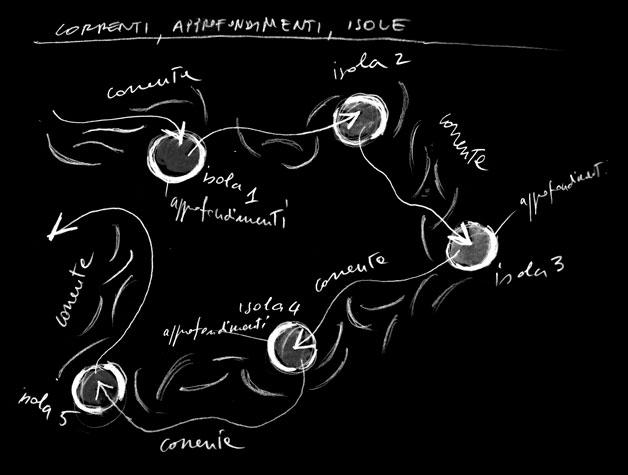 CORRENTI, APPROFONDIMENTI, ISOLE
corrente
isola 2
corrente
isola 1
approfondimenti
approfondimenti
isola 3
corrente
corrente
isola 4
approfondimenti
isola 5
corrente